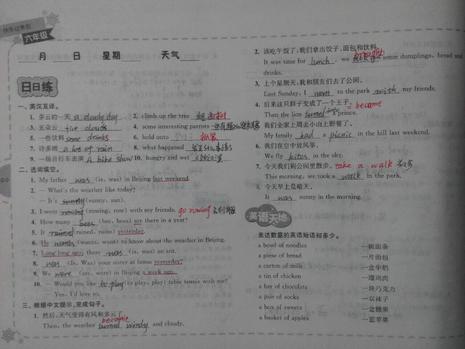 六年级
月 日 星期 天气
日日练
一、英汉互译。
1. 多云的一天 a cloudy day 2. climb up the tree
3. 五朵云 five clouds 4. some interesting parrots
5. 一些饮料 some drinks 6. hold onto 抓紧
7. 许多雨 a lot of rain 8. what happened
9. 一场自行车表演 a bike show 10. hungry and wet
二、选词填空。
1. My father was (is, was) in Beijing last weekend.
2. — What's the weather like today?
— It's sunny (sunny, sun).
3. I went rowing (rowing, row) with my friends. go rowing
4. How many bees (bee, bees) are there in a year?
5. It rained (rained, rains) yesterday.
6. He wants (wants, want) to know about the weather in Beijing.
7. Long long ago, there was (is, was) an ant.
8. Was (Is, Was) your sister at home yesterday?
9. We were (are, were) in Beijing a week ago.
10. Would you like to play (to play, play) table tennis with me?
Yes, I'd love to.
三、根据中文提示,完成句子。
1. 然后,天气变得有风和多云了。
Then, the weather became windy and cloudy.
2. 该吃午饭了,我们拿出饺子、面包和饮料。
It was time for lunch, we some dumplings, bread and
drinks.
3. 上个星期天,我和朋友们去了公园。
Last Sunday, I went to the park with my friends.
4. 后来这只狮子变成了一个王子。 become
Then the lion turned prince.
5. 我们全家上周去小山上野餐了。
My family had a picnic in the hill last weekend.
6. 我们在空中放风筝。
We fly kites in the sky.
7. 今天我们到公园里散步。 take a walk 散步
This morning, we took a walk in the park.
8. 今天早上是晴天。
It was sunny in the morning.
英语天地
表达数量的英语短语知多少。
a bowl of noodles 一碗面条
a piece of bread 一片面包
a carton of milk 一盒牛奶
a tin of chicken 一罐鸡肉
a bar of chocolate 一块巧克力
a pair of socks 一双袜子
a box of sweets 一盒糖果
a basket of apples 一篮苹果